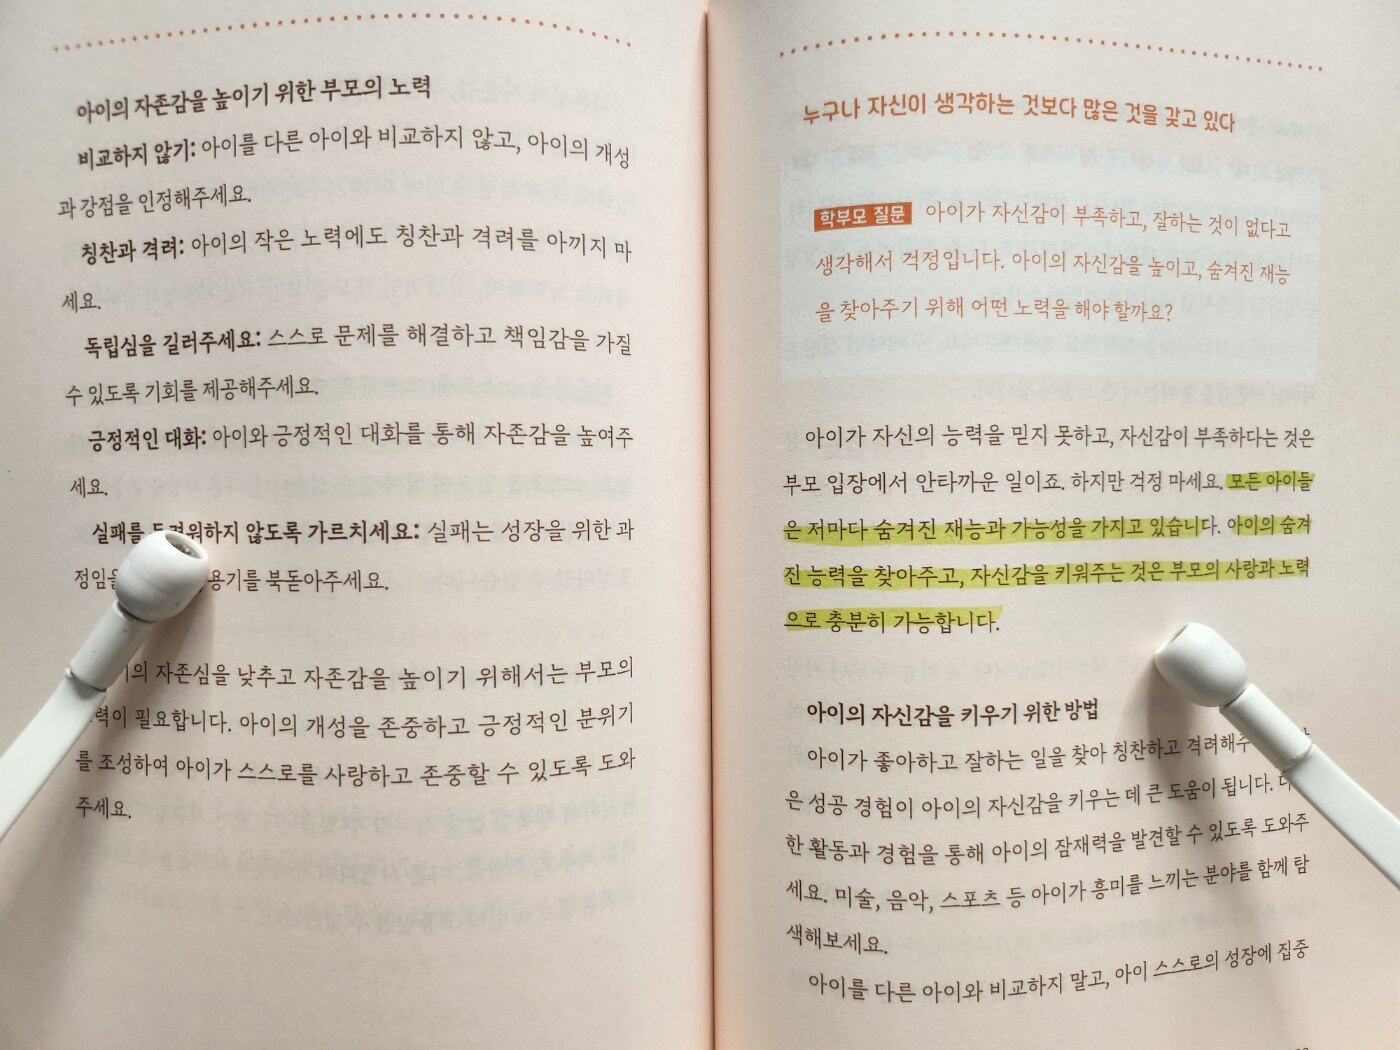 아이의 자존감을 높이기 위한 부모의 노력
비교하지 않기: 아이를 다른 아이와 비교하지 않고, 아이의 개성
과 강점을 인정해주세요.
칭찬과 격려: 아이의 작은 노력에도 칭찬과 격려를 아끼지 마
세요.
독립심을 길러주세요: 스스로 문제를 해결하고 책임감을 가질
수 있도록 기회를 제공해주세요.
긍정적인 대화: 아이와 긍정적인 대화를 통해 자존감을 높여주
세요.
실패를 두려워하지 않도록 가르치세요: 실패는 성장을 위한 과
용기를 북돋아주세요.
자존심을 낮추고 자존감을 높이기 위해서는 부모의
필요합니다. 아이의 개성을 존중하고 긍정적인 분위기
를 조성하여 아이가 스스로를 사랑하고 존중할 수 있도록 도와
주세요.
누구나 자신이 생각하는 것보다 많은 것을 갖고 있다
학부모 질문 아이가 자신감이 부족하고, 잘하는 것이 없다고
생각해서 걱정입니다. 아이의 자신감을 높이고, 숨겨진 재능
을 찾아주기 위해 어떤 노력을 해야 할까요?
아이가 자신의 능력을 믿지 못하고, 자신감이 부족하다는 것은
부모 입장에서 안타까운 일이죠. 하지만 걱정 마세요. 모든 아이들
은 저마다 숨겨진 재능과 가능성을 가지고 있습니다. 아이의 숨겨
진 능력을 찾아주고, 자신감을 키워주는 것은 부모의 사랑과 노력
으로 충분히 가능합니다.
아이의 자신감을 키우기 위한 방법
아이가 좋아하고 잘하는 일을 찾아 칭찬하고 격려해주
은 성공 경험이 아이의 자신감을 키우는 데 큰 도움이 됩니다.
한 활동과 경험을 통해 아이의 잠재력을 발견할 수 있도록 도와주
세요. 미술, 음악, 스포츠 등 아이가 흥미를 느끼는 분야를 함께 탐
색해보세요.
아이를 다른 아이와 비교하지 말고, 아이 스스로의 성장에 집중